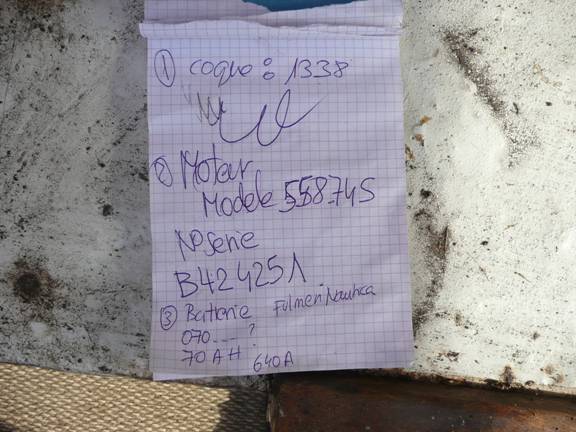 ① coque : 1338
② Moteur
Modele 558745
N° Serie
B424251
③ Batterie Fulmen Nautica
070---- ?
70 AH 640A